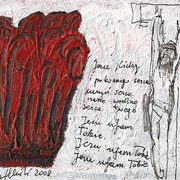 Jezu Cichy
i pokornego serca
uczyń serce
nasze według
serca Twego
Jezu ufam
Tobie
Jezu ufam Tobie
Jezu ufam Tobie
2008